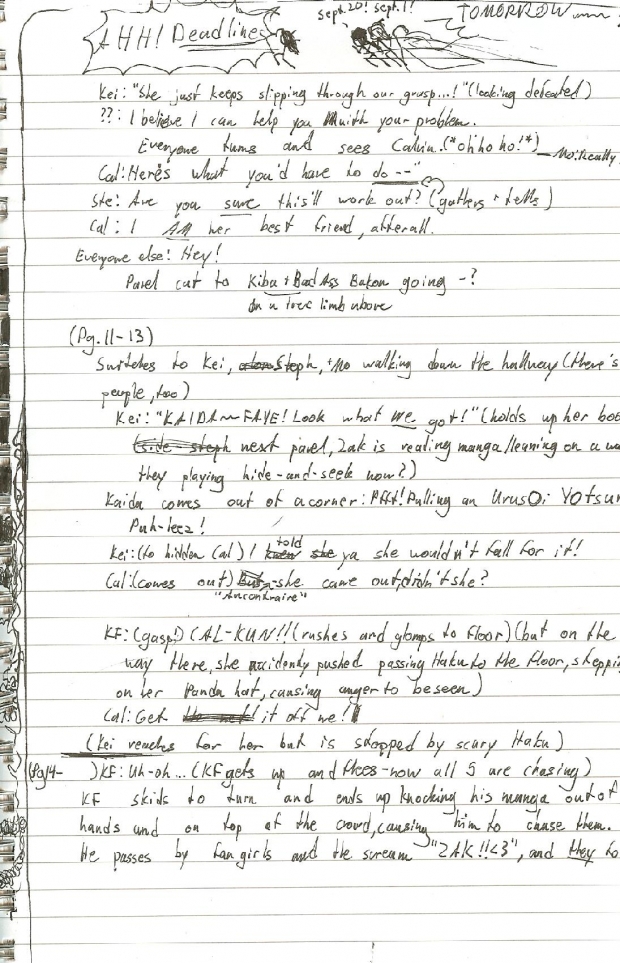 AHH! Deadlines
Sept. 20! Sept. 1!
TOMORROW
Kei: "She just keeps slipping through our grasp...!" (looking defeated)
??: I believe I can help you with your problem.
Everyone turns and sees Calvin. (*oh ho ho!*)
Cal: Here's what you'd have to do --"
Ste: Are you sure this'll work out? (gathers + tells)
Cal: I AM her best friend, afterall.
Everyone else: Hey!
Panel cut to Kiba + Bad Ass Bakon going -?
On a tree limb above
(Pg. 11-13)
Switches to Kei, Steph, + Mo walking down the hallway (there's
people, too)
Kei: "KAIDA~FAYE! Look what we got!" (holds up her
next panel, Zak is reading manga/leaning on a
they playing hide-and-seek now?)
Kaida comes out of a corner: Pffft! Pulling an Urusoi
Puh-leez!
Kei: (to hidden Cal) I told ya she wouldn't fall for it!
Cal: (comes out) she came out, didn't she?
"Anconkraire"
KF: (gasp!) CAL-KUN!! (rushes and glomps to floor) (but on the
way there, she accidently pushed passing Haku to the floor,
on her Panda hat, causing anger to be seen)
Cal: Get it off me!
(Kei reaches for her but is stopped by scary Haku)
(Pg 14- ) KF: Uh-oh... (KF gets up and flees-now all 5 are chasing)
KF skids to turn and ends up knocking his manga out of
hands and on top of the crowd, causing him to chase them.
He passes by fan girls and the scream "ZAK!!<3", and they